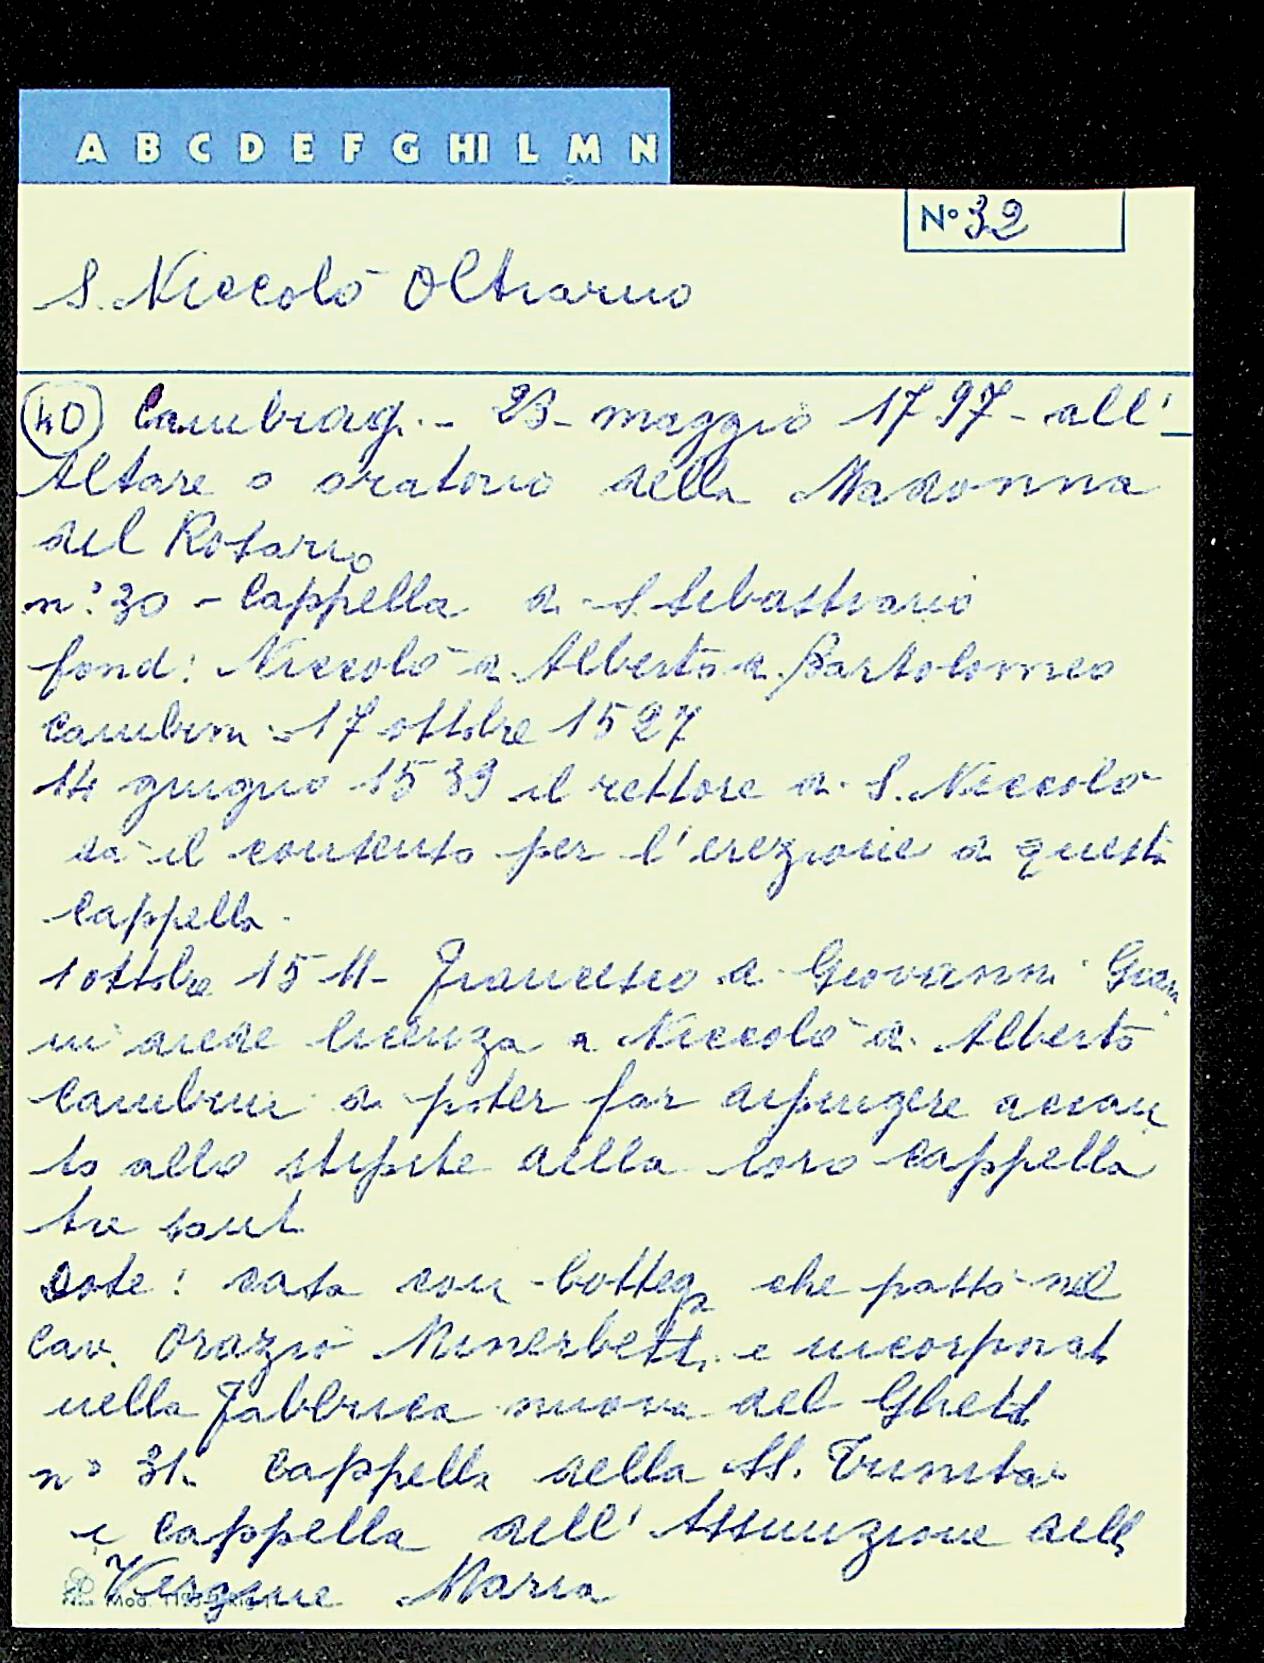 A B C D E F G HI L M N
N° 32
S. Niccolò Oltrarno
(40) Cambiag. - 23 - maggio 1797 - all'
Altare o oratorio della Madonna
del Rosario
n° 30 - Cappella di S. Sebastiano
fond: Niccolò di Alberto di Bartolomeo
Cambini 17 ottobre 1527
14 giugno 1539 il rettore di S. Niccolò
dà il consenso per l'erezione di questa
cappella.
1 ottobre 1511 - Francesco di Giovanni Gian
ni diede licenza a Niccolò di Alberto
Cambini di poter far dipingere accan
to allo stipite della loro cappella
tre santi
Dote: casa con bottega che passò nel
Cav. Orazio Minerbetti e incorporata
nella fabbrica nuova del Ghetto
n° 31. cappella della SS. Trinità
e cappella dell'Assunzione della
Vergine Maria
Mod.